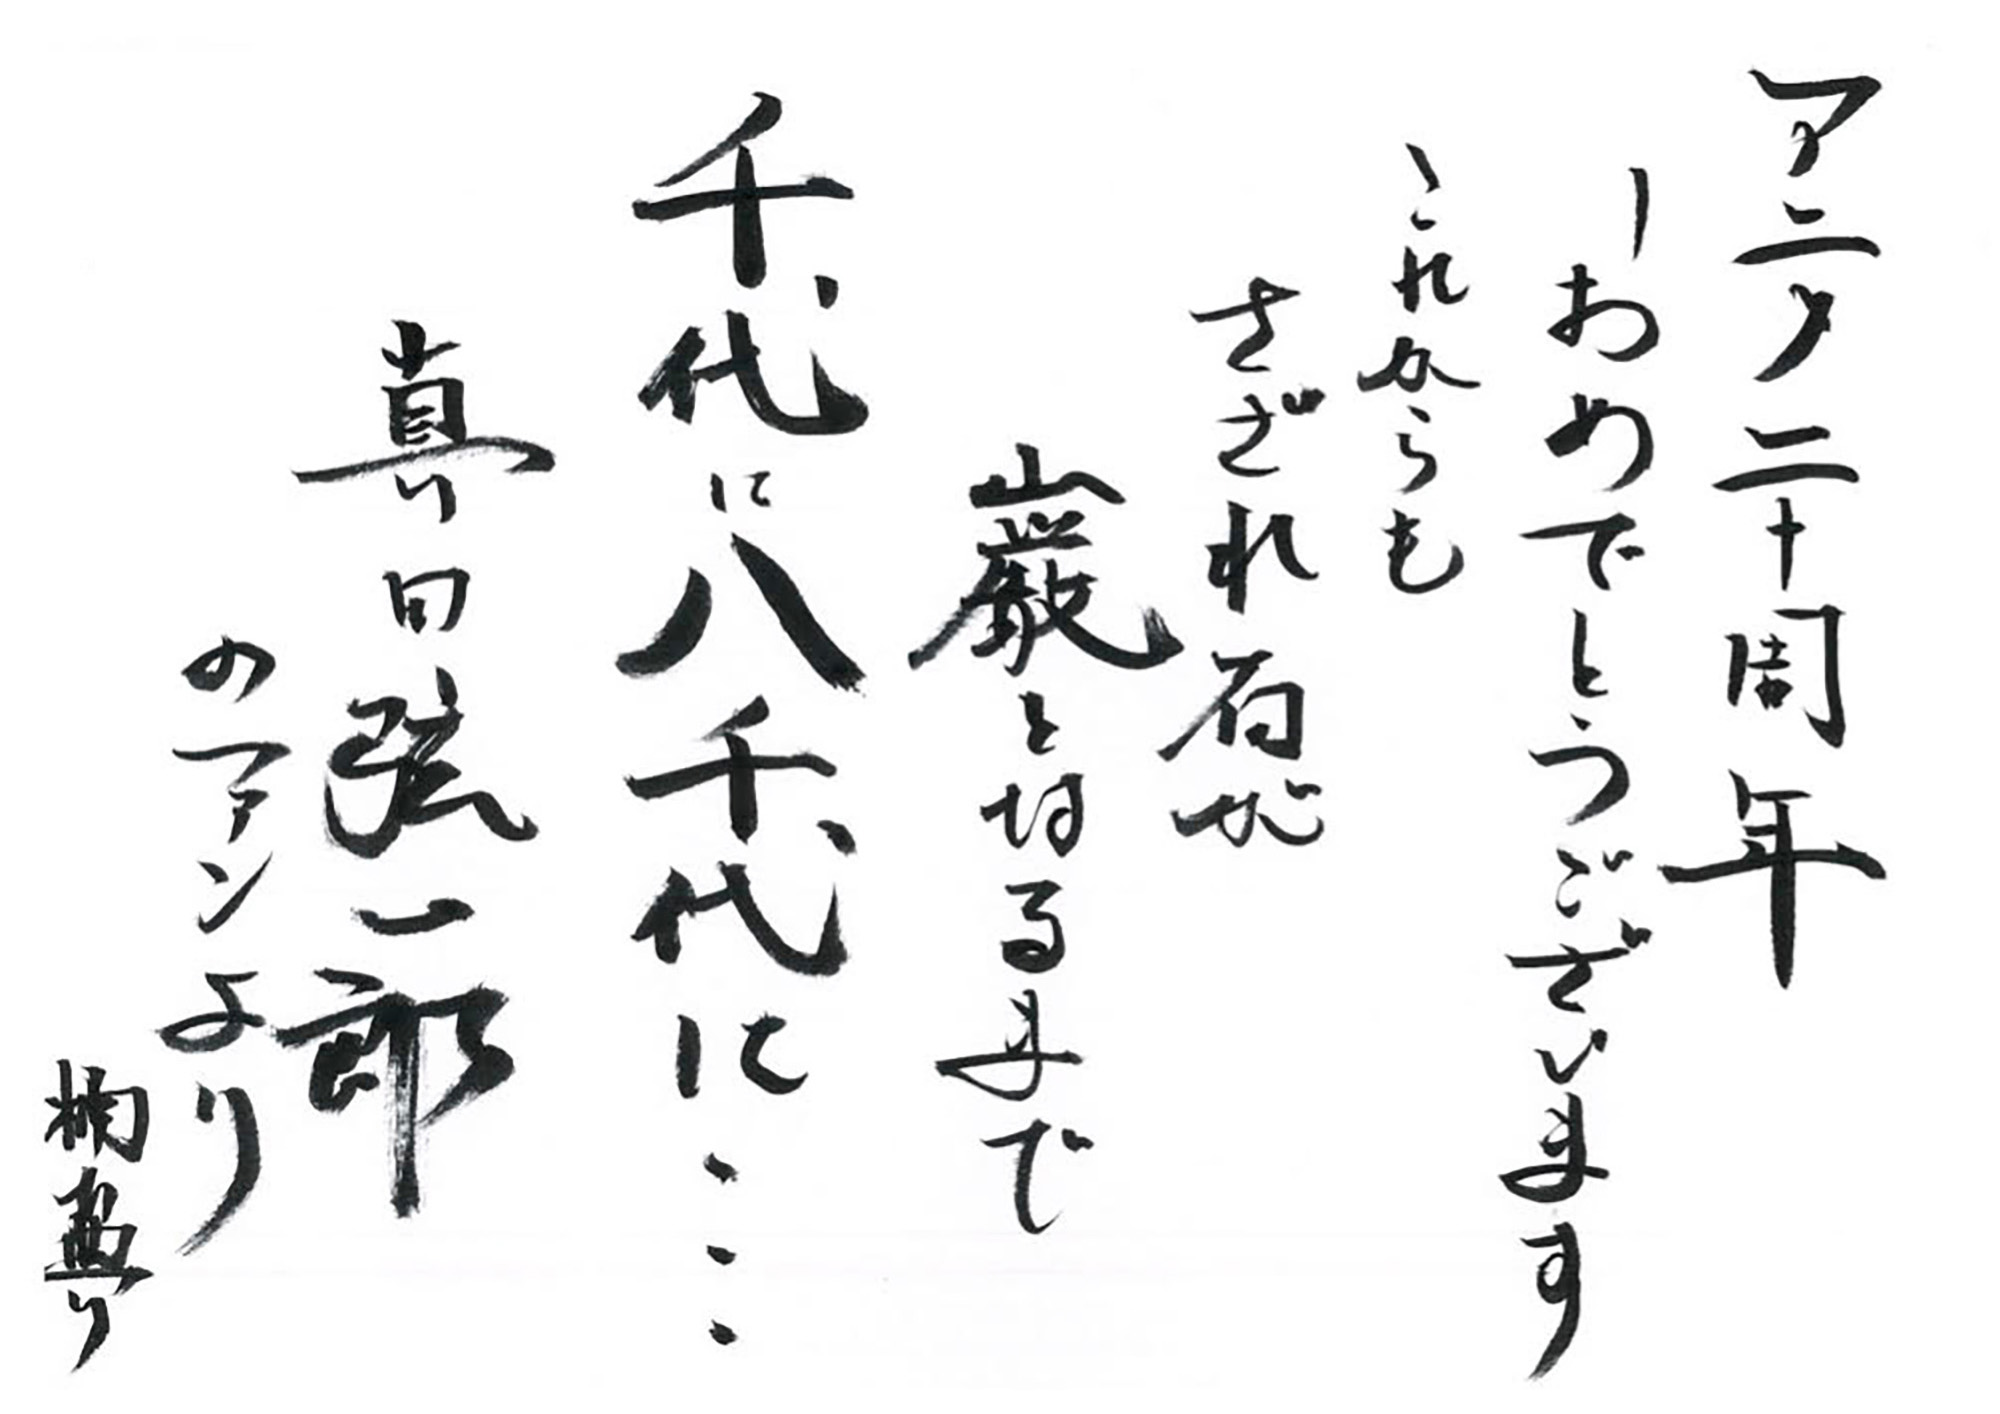 アニタ二十周年
おめでとうございます
これからも
さざれ石が
巖となるまで
千代に八千代に・・・
真田弦一郎
のファンより
楠典